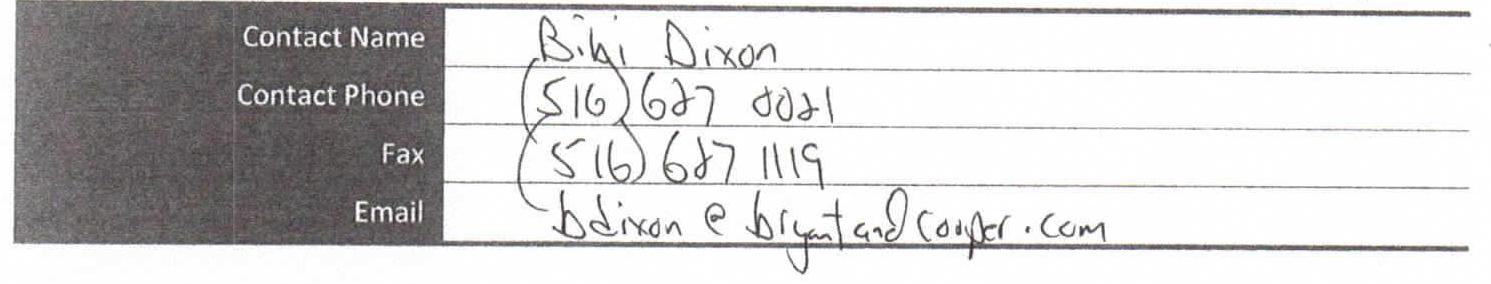 Contact Name Bibi Dixon
Contact Phone (516) 627 8021
Fax (516) 627 1119
Email bdixon @ bryantandcooper.com